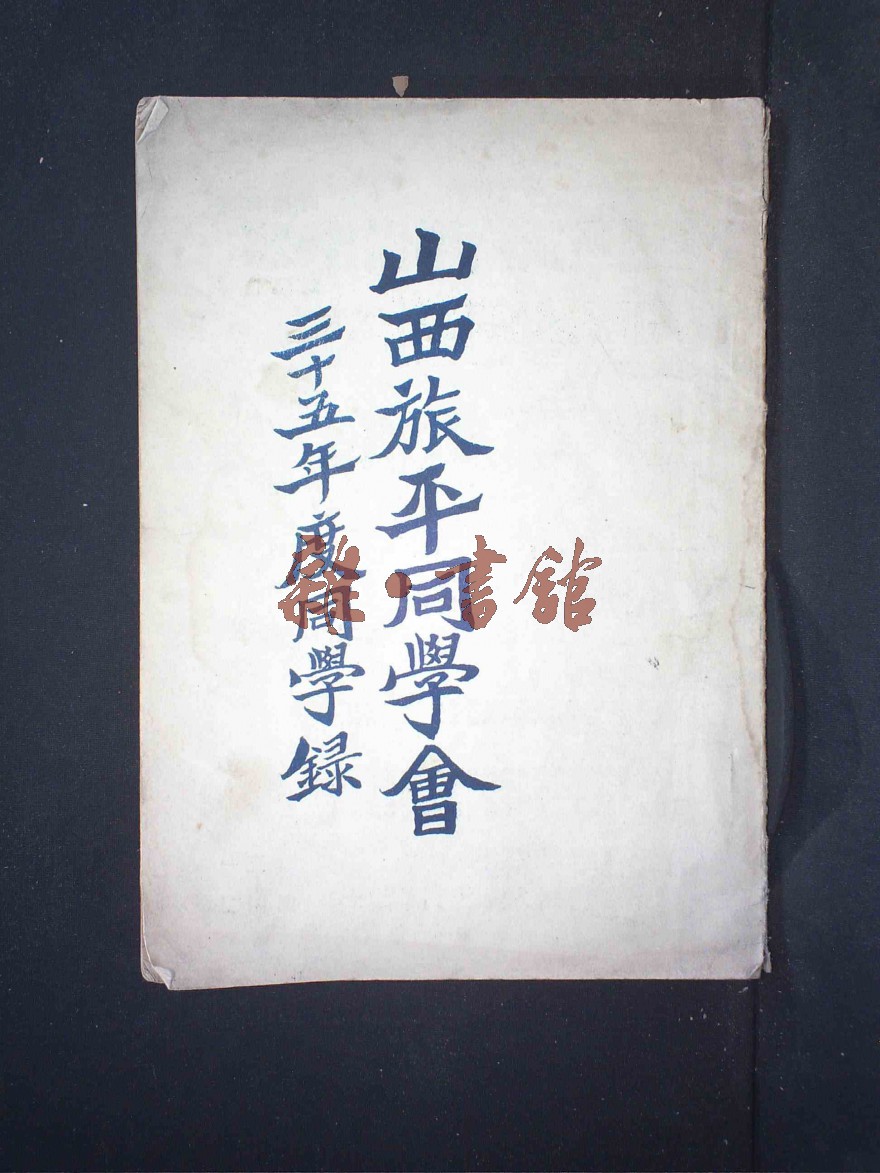 山西旅平同學會
三十五年度同學録
雜·書館